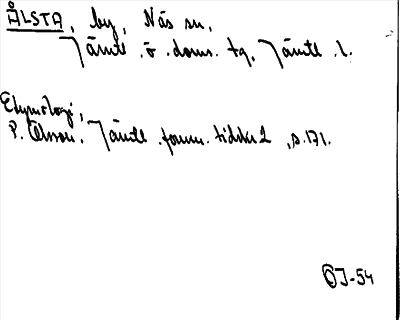 ÅLSTA, by, Näs sn.
Jämtl. ö. doms. tg, Jämtl. l.
Etymologi,
P. Olsson. Jämtl. fornm. tidskr 2, s. 171.
OJ-54